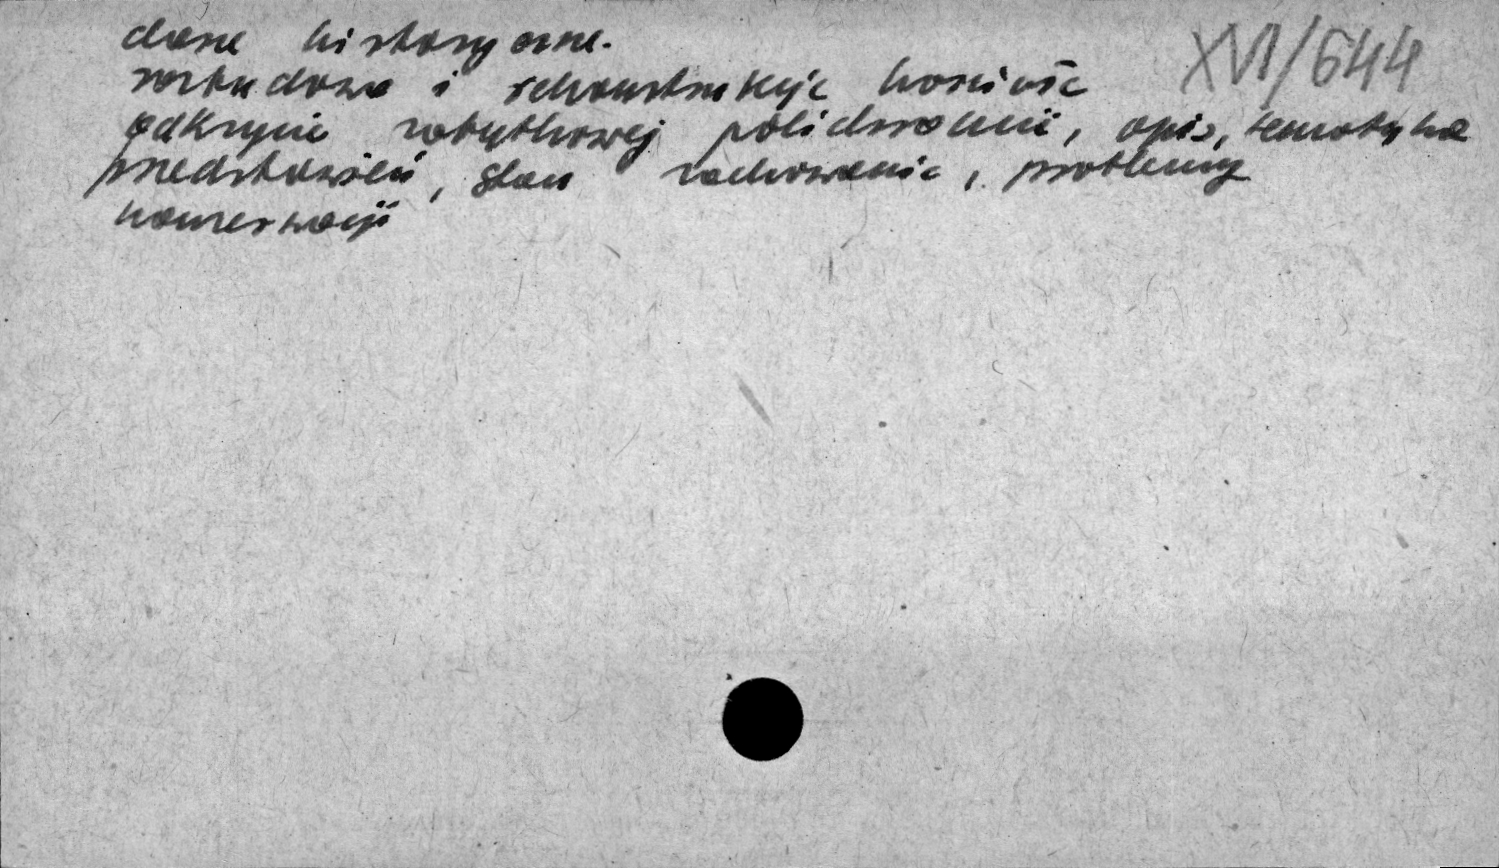 dane historyczne.
XVI/644
rozbudowa i rekonstrukcje kościoła
odkrycie zabytkowej polichromii, opis, tematyka
przedstawień, stan zachowania, problemy
konserwacji